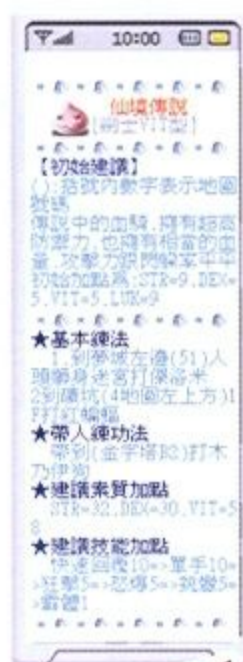 10:00
仙境傳說
[劍士VIT型]
【初始建議】
():括號內數字表示地圖
號碼
傳說中的血騎,擁有超高
防禦力,也擁有相當的血
量,攻擊力跟閃躲率平平
初始加點為:STR=9.DEX=
5.VIT=5.LUK=9
★基本練法
1.到夢城左邊(51)人
頭獅身迷宮打傑洛米
2到礦坑(4地圖左上方)1
F打紅蝙蝠
★帶人練功法
帶到(金字塔B2)打木
乃伊狗
★建議素質加點
STR=32.DEX=30.VIT=5
8
★建議技能加點
快速回復10=>單手10=
>狂擊5=>怒爆5=>挑釁5=
>霸體1